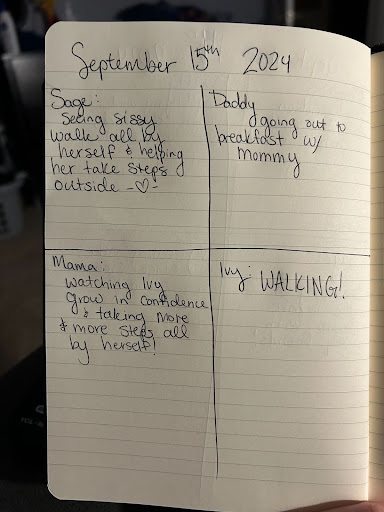 September 15th 2024
Sage:
Seeing sissy
walk all by
herself & helping
her take steps
outside -♡-
Daddy
going out to
breakfast w/
mommy
Mama:
watching Ivy
grow in confidence
& taking more
& more steps all
by herself!
Ivy: WALKING!